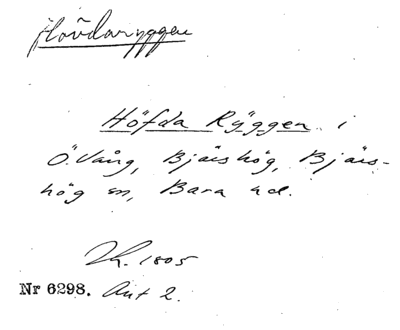 Hovdaryggen
Höfda Ryggen i
Ö. Vång, Bjärshög, Bjärs-
hög sn, Bara hd.
1805
Nr 6298. Akt 2.